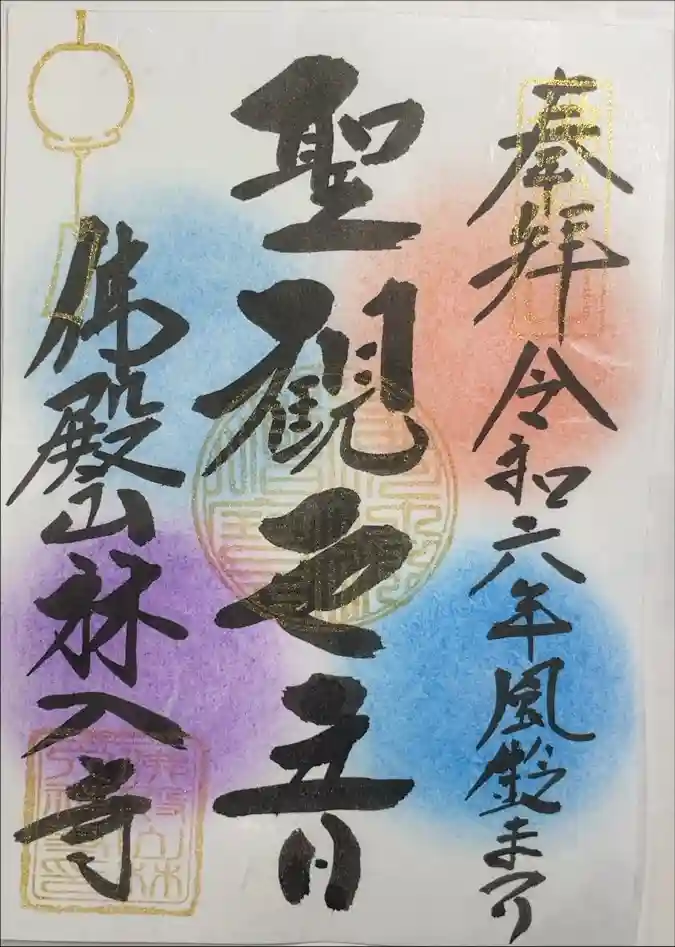 奉拝 令和六年風鈴まつり
聖観世音
佛殿山林入寺